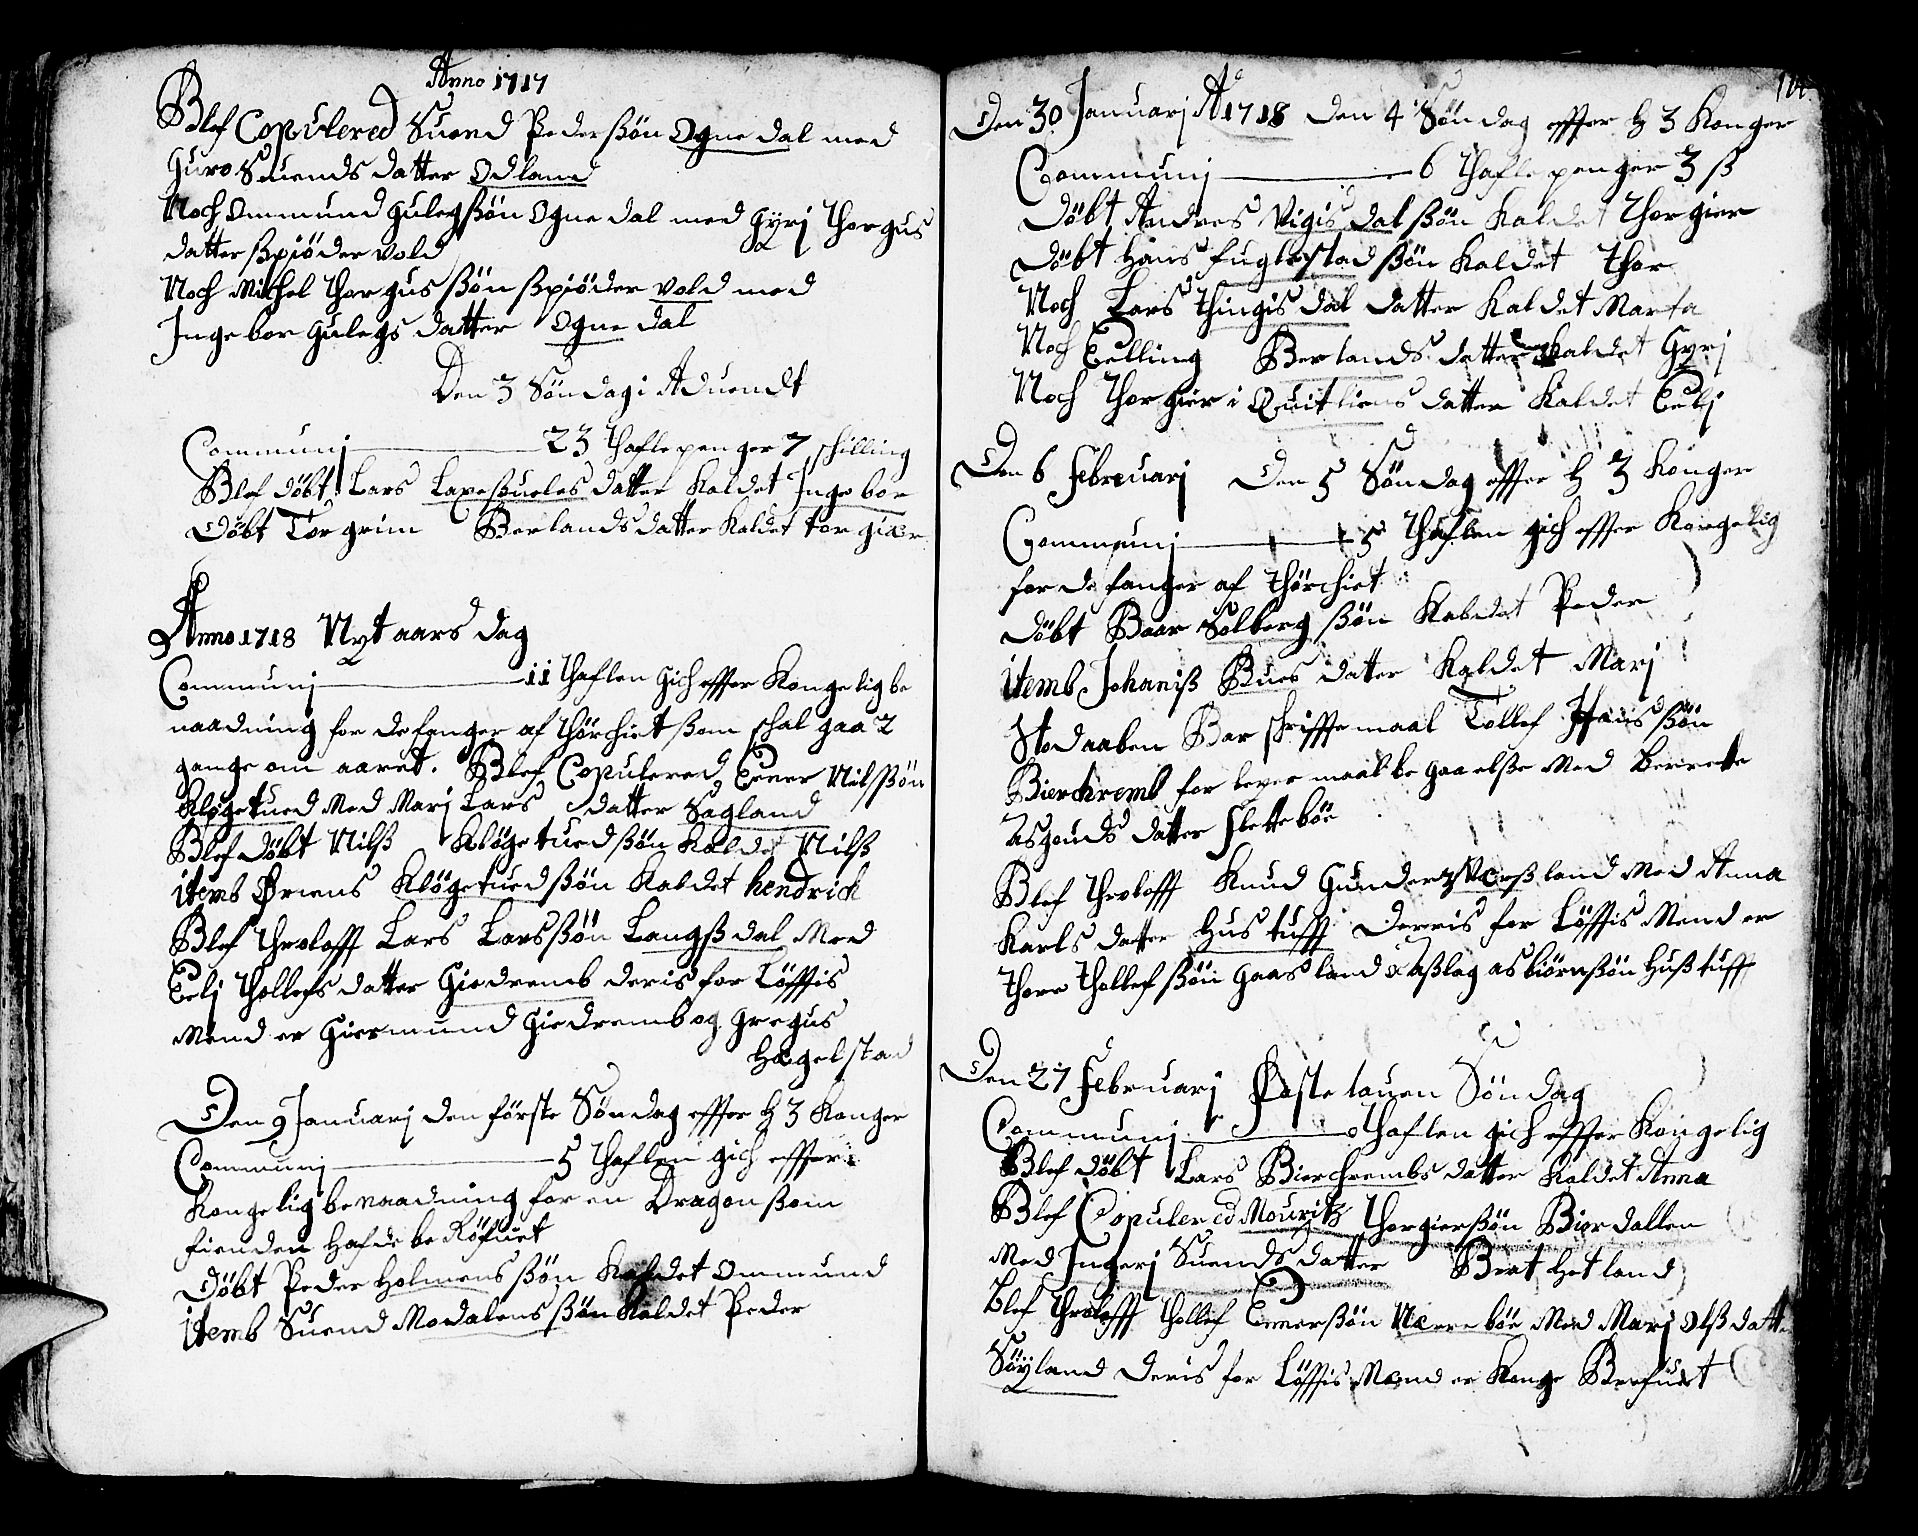 Anno 1717
Blef Copulered Suend Pederßön Ogne dal med
Guro Suends datter Odland
Noch Ommund Gulegßön Ogne dal med Gyrj Thorgus
datter ßpiöder vold
Noch Michel Thorgus ßön ßpiöder vold med
Ingebor Gulegs datter Ogne dal
Den 3 Söndag i Aduendt
Communj 23 Thaflepenger 7 schilling
Blef döbt Lars Laxeßueles datter Kaldet Ingebor
Döbt Torgrim Berlands datter Kaldet Torgiær
Anno 1718 Nyt aars dag
Communj 11 Thaflen gich effter Kongelig be
naadning for de fanger af Thörchiet ßom schal gaa 2
gange om aaret. Blef Copulered Ener Nilßön
Klögetued Med Marj Lars datter Sagland
Blef döbt Nilß Klögetued ßön Kaldet Nilß
item Öriens Klögetued ßön Kaldet hendrick
Blef Throlofft Lars Larsßön Langß dal Med
Elj Thollefs datter Giedremb deris for Löfftis
Mend er Giermund Giedremb og Gregus
Hægelstad
Den 9 Januarj den förste Söndag effter H 3 Konger
Communj 5 Thaflen gich effter
Kongelig benaadning for en Dragon ßom
fienden Hafde be Röfuet
Döbt Peder Holmens ßön Kaldet Ommund
item Suend Modalens ßön Kaldet Peder
Den 30 Januarj A 1718 Den 4 Söndag effter H 3 Konger
Communj 6 Thaflepenger 3 ß
Döbt Andres Vigis dal ßön Kaldet Thorgier
Döbt Hans fuglestad ßön Kaldet Thor
Noch Lars Thingis dal datter Kaldet Marta
Noch Elling Berlands datter Kaldet Gyrj
Noch Thorgier i Quitliens datter Kaldet Elj
Den 6 Februarj Den 5 Söndag effter H 3 Konger
Communj 5 Thaflen gich effter Kongelig
for de fanger af Thörchiet
Döbt Baar Solberg ßön Kaldet Peder
item Johaniß Bues datter Kaldet Marj
Stod aaben Bar schrifftemaal Tollef Hansßön
Bierchremb for leyermaals be gaaelße Med Berrette
Aszouds datter Sletteböe
Blef Throlofft Knud Gunders Værßland Med Anna
Karls datter Hustufft Derris for Löfftis Mend er
Thore Thollefßön Gaasland & Aßlag asbiörnßön Hußtufft
Den 27 Februarj Fastelauen Söndag
Communj 0 Thaflen gich effter Kongelig
Blef döbt Lars Bierchrembs datter Kaldet Anna
Blef Copulered Mouritz Thorgierßön Bierdallen
Med Ingerj Suends datter Brat Hetland
Blef Throlofft Thollef Enerßön Nærreböe Med Marj Olß datter
Söyland Deris for Löfftis Mænd er Kongs Brefuet